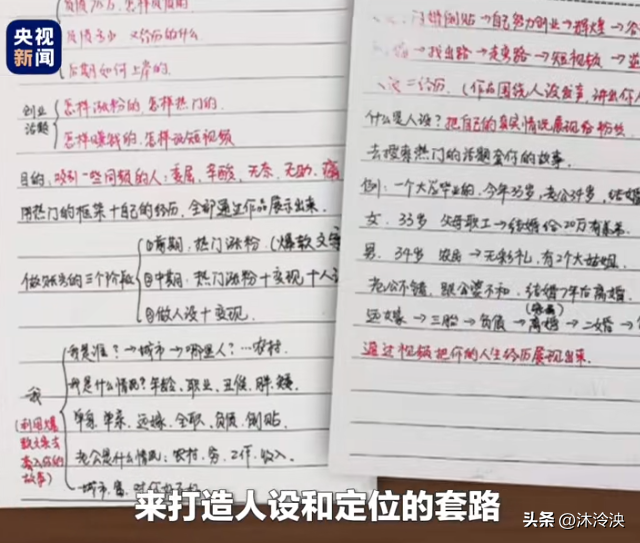 央视新闻
后期如何上岸的.
创业话题
怎样涨粉的.怎样热门的.
怎样赚钱的.怎样玩短视频
目的:吸引一些同频的人:委屈、辛酸、无奈、无助、痛
用热门的框架+自己的经历,全部通过作品展示出来.
做账号的三个阶段
①前期:热门涨粉(爆款文
②中期:热门涨粉+变现+人设
③做人设+变现.
我
(利用爆款文案去套入你的故事)
我是谁?→城市→哪里人?…农村.
我是什么情况?年龄、职业、丑俊、胖矮
单亲、远嫁、全职、负债、倒贴
老公是什么情况:农村、穷、工作、收入.
→自己努力创业→辉煌→
→找出路→走弯路→短视频→
什么是人设?把自己的真实情况展现给粉丝
去搜索热门的话题套你的故事.
例:一个大专毕业的,今年33岁,老公34岁,结婚
女.33岁 父母职工→结婚给20万
男.34岁 农房→无彩礼,有2个大姑姐.
老公不错,跟公婆不和,结婚7年后离婚.
远嫁→三胎→负债→离婚→二婚→
通过视频把你的人生经历展现出来.
来打造人设和定位的套路
头条 @沐泠泱